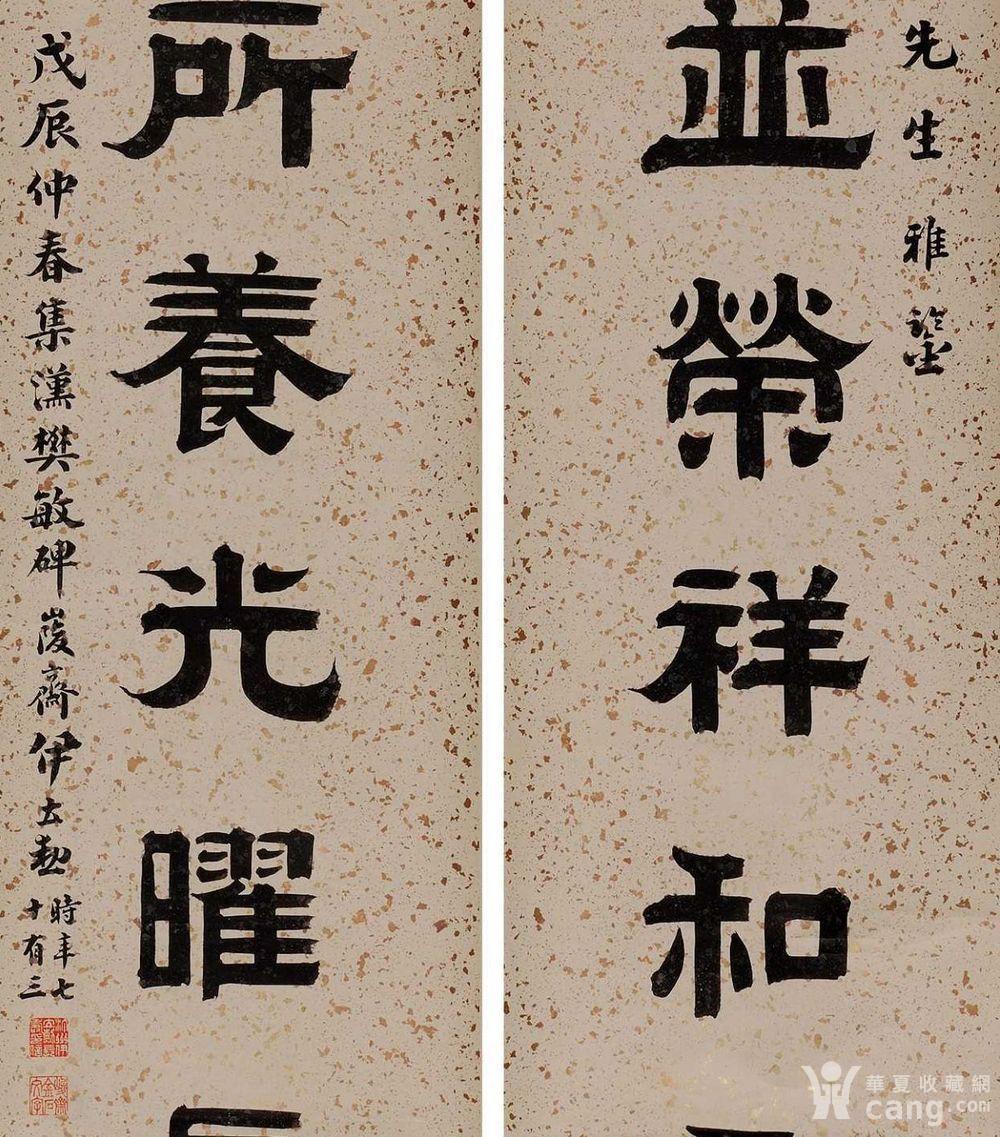 先生雅鑒
並榮祥和
所養光曜
戊辰仲春集漢樊敏碑峻齋伊立勳時年七十有三
華夏收藏網
cang.com